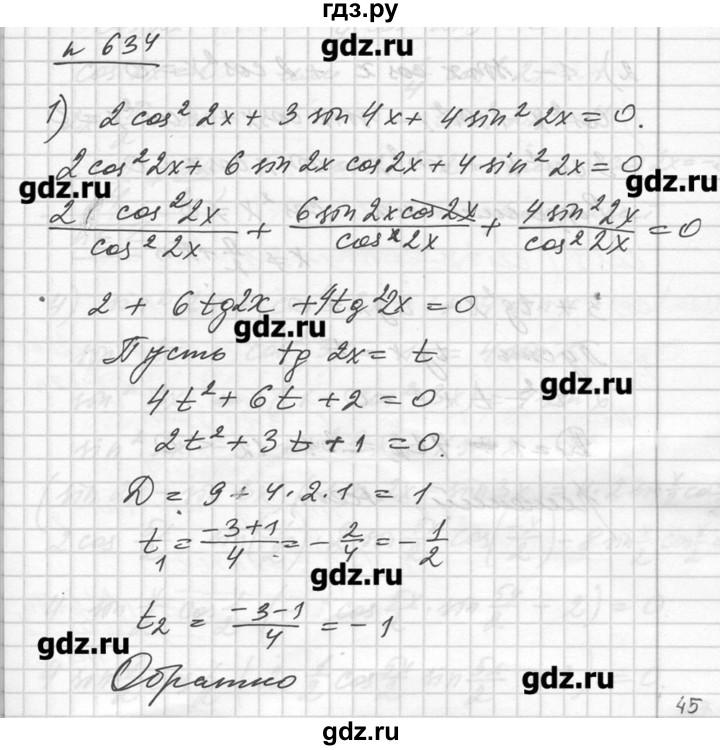 гдз.ру
gdz.ru
н 634
1) 2 cos² 2x + 3 sin 4x + 4 sin² 2x = 0.
2cos² 2x + 6 sin 2x cos 2x + 4 sin² 2x = 0
gdz.ru gdz.ru
2 cos² 2x / cos² 2x + 6 sin 2x cos 2x / cos² 2x + 4 sin² 2x / cos² 2x = 0
2 + 6 tg 2x + 4 tg² 2x = 0
gdz.ru
Пусть tg 2x = t
gdz.ru
4t² + 6t + 2 = 0
2t² + 3t + 1 = 0.
Д = 9 - 4·2·1 = 1
t₁ = (-3+1)/4 = -2/4 = -1/2
gdz.ru
t₂ = (-3-1)/4 = -1
gdz.ru
Обратно
gdz.ru
45
gdz.ru